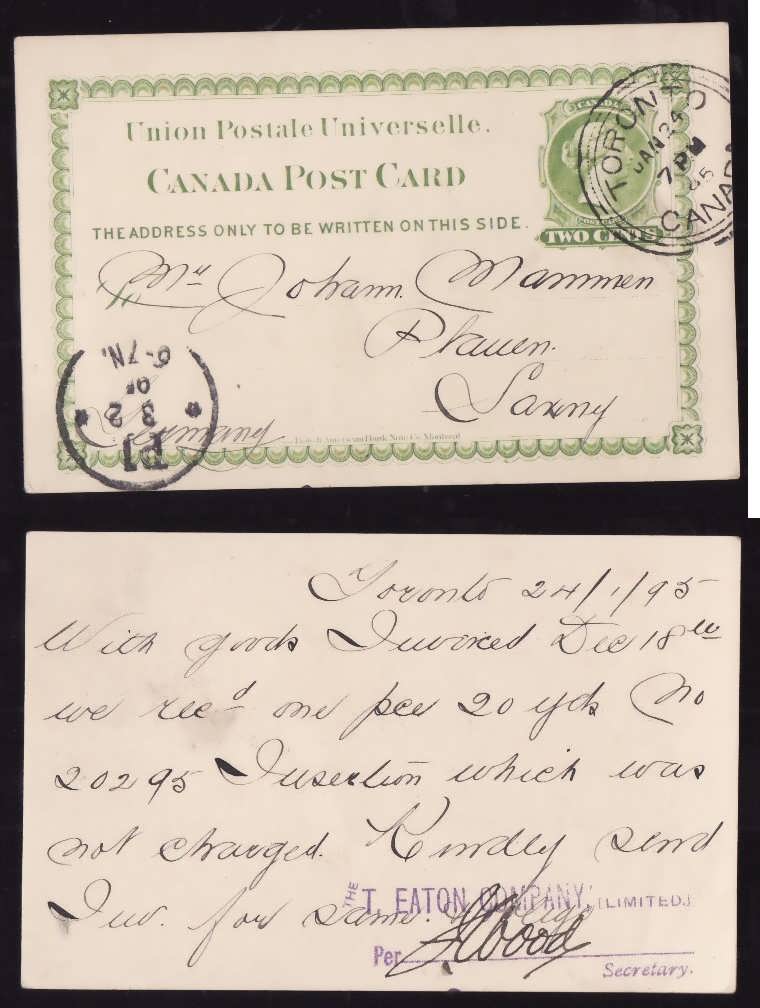 Union Postale Universelle.
CANADA POST CARD
THE ADDRESS ONLY TO BE WRITTEN ON THIS SIDE.
CANADA
TWO CENTS
TORONTO
JAN 24
7 PM
95
CANADA
Mr Johann Mammen
Plauen.
Saxony
Germany
6-7N.
95
3 2
Pl
Toronto 24/1/95
With goods Invoiced Dec 18th
we rec'd one pce 20 yds No
20295 Insertion which was
not charged. Kindly send
Inv. for same. & oblige
THE T. EATON COMPANY, (LIMITED.)
Per Wood
Secretary.